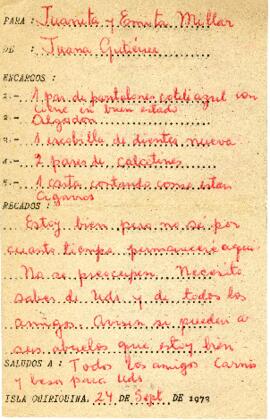 PARA : Juanita y Ernesta Millar
DE : Juana Gutiérrez
ENCARGOS :
1.- 1 par de pantalones cotelé azul con cierre en buen estado
2.- Algodón
3.- 1 escobilla de dientes nueva
4.- 2 pares de calcetines
5.- 1 carta contando como están
Cigarros
RECADOS :
Estoy bien pero no sé por
cuanto tiempo permaneceré aquí
No se preocupen. Necesito
saber de Uds. y de todos los
amigos. Avisen si pueden a
sus abuelos que estoy bien
SALUDOS A : Todos los amigos Cariños
y besos para Uds.
ISLA QUIRIQUINA, 24 DE Sept. DE 1973